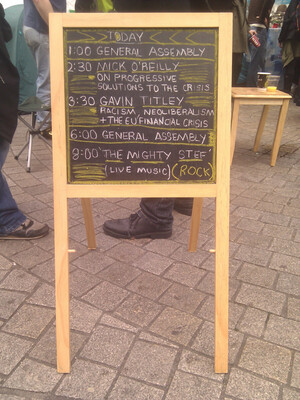 TODAY
1:00 GENERAL ASSEMBLY
2:30 MICK O'REILLY
ON PROGRESSIVE
SOLUTIONS TO THE CRISIS
3:30 GAVIN TITLEY
RACISM, NEOLIBERALISM
+ THE EU FINANCIAL CRISIS
6:00 GENERAL ASSEMBLY
8:00 THE MIGHTY STEF
(LIVE MUSIC) (ROCK)